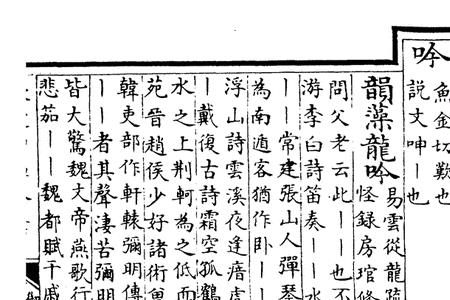 吟
魚金切歎也
說文呻丨也
韻藻龍吟
易雲從龍疏
怪錄房琯修
問父老云此丨丨也不
游李白詩笛奏丨丨水
丨丨常建張山人彈琴
為南遁客猶作卧丨丨
浮山詩雲溪夜逢瘖虎
丨戴復古詩霜空孤鶴
水之上荆軻為之低而
苑晉趙侯少好諸術
韓吏部作軒轅彌明傳
丨丨者其聲淒苦彌明
皆大驚魏文帝燕歌行
悲笳丨丨魏都賦干戚